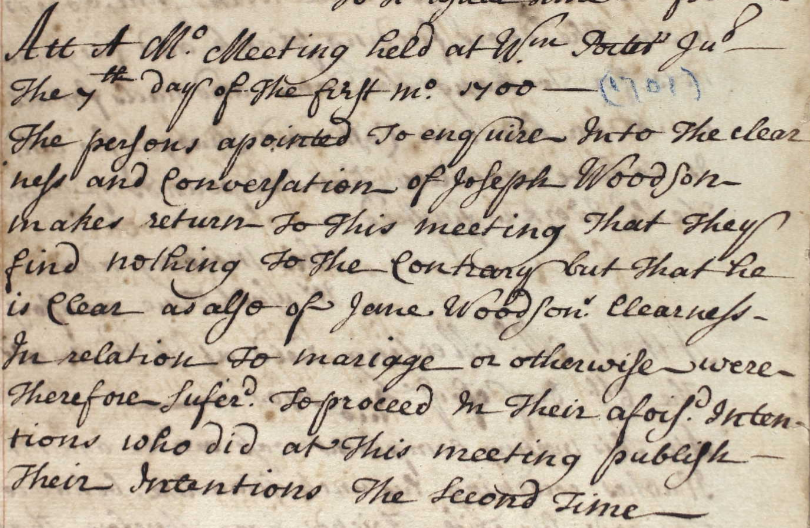 Att A Mo. Meeting held at Wm Porter Jur
The 7th day of The first mo. 1700 — (1701)
The persons apointed To enquire Into The clear
ness and Conversation of Joseph Woodson
makes return To This meeting That They
find nothing To The Contrary but That he
is Clear as also of Jane Woodsons. Clearness-
In relation To mariage or otherwise were-
Therefore Suferd. To proceed In Their afoisd. Inten-
tions who did at This meeting publish —
Their Intentions The Second Time —